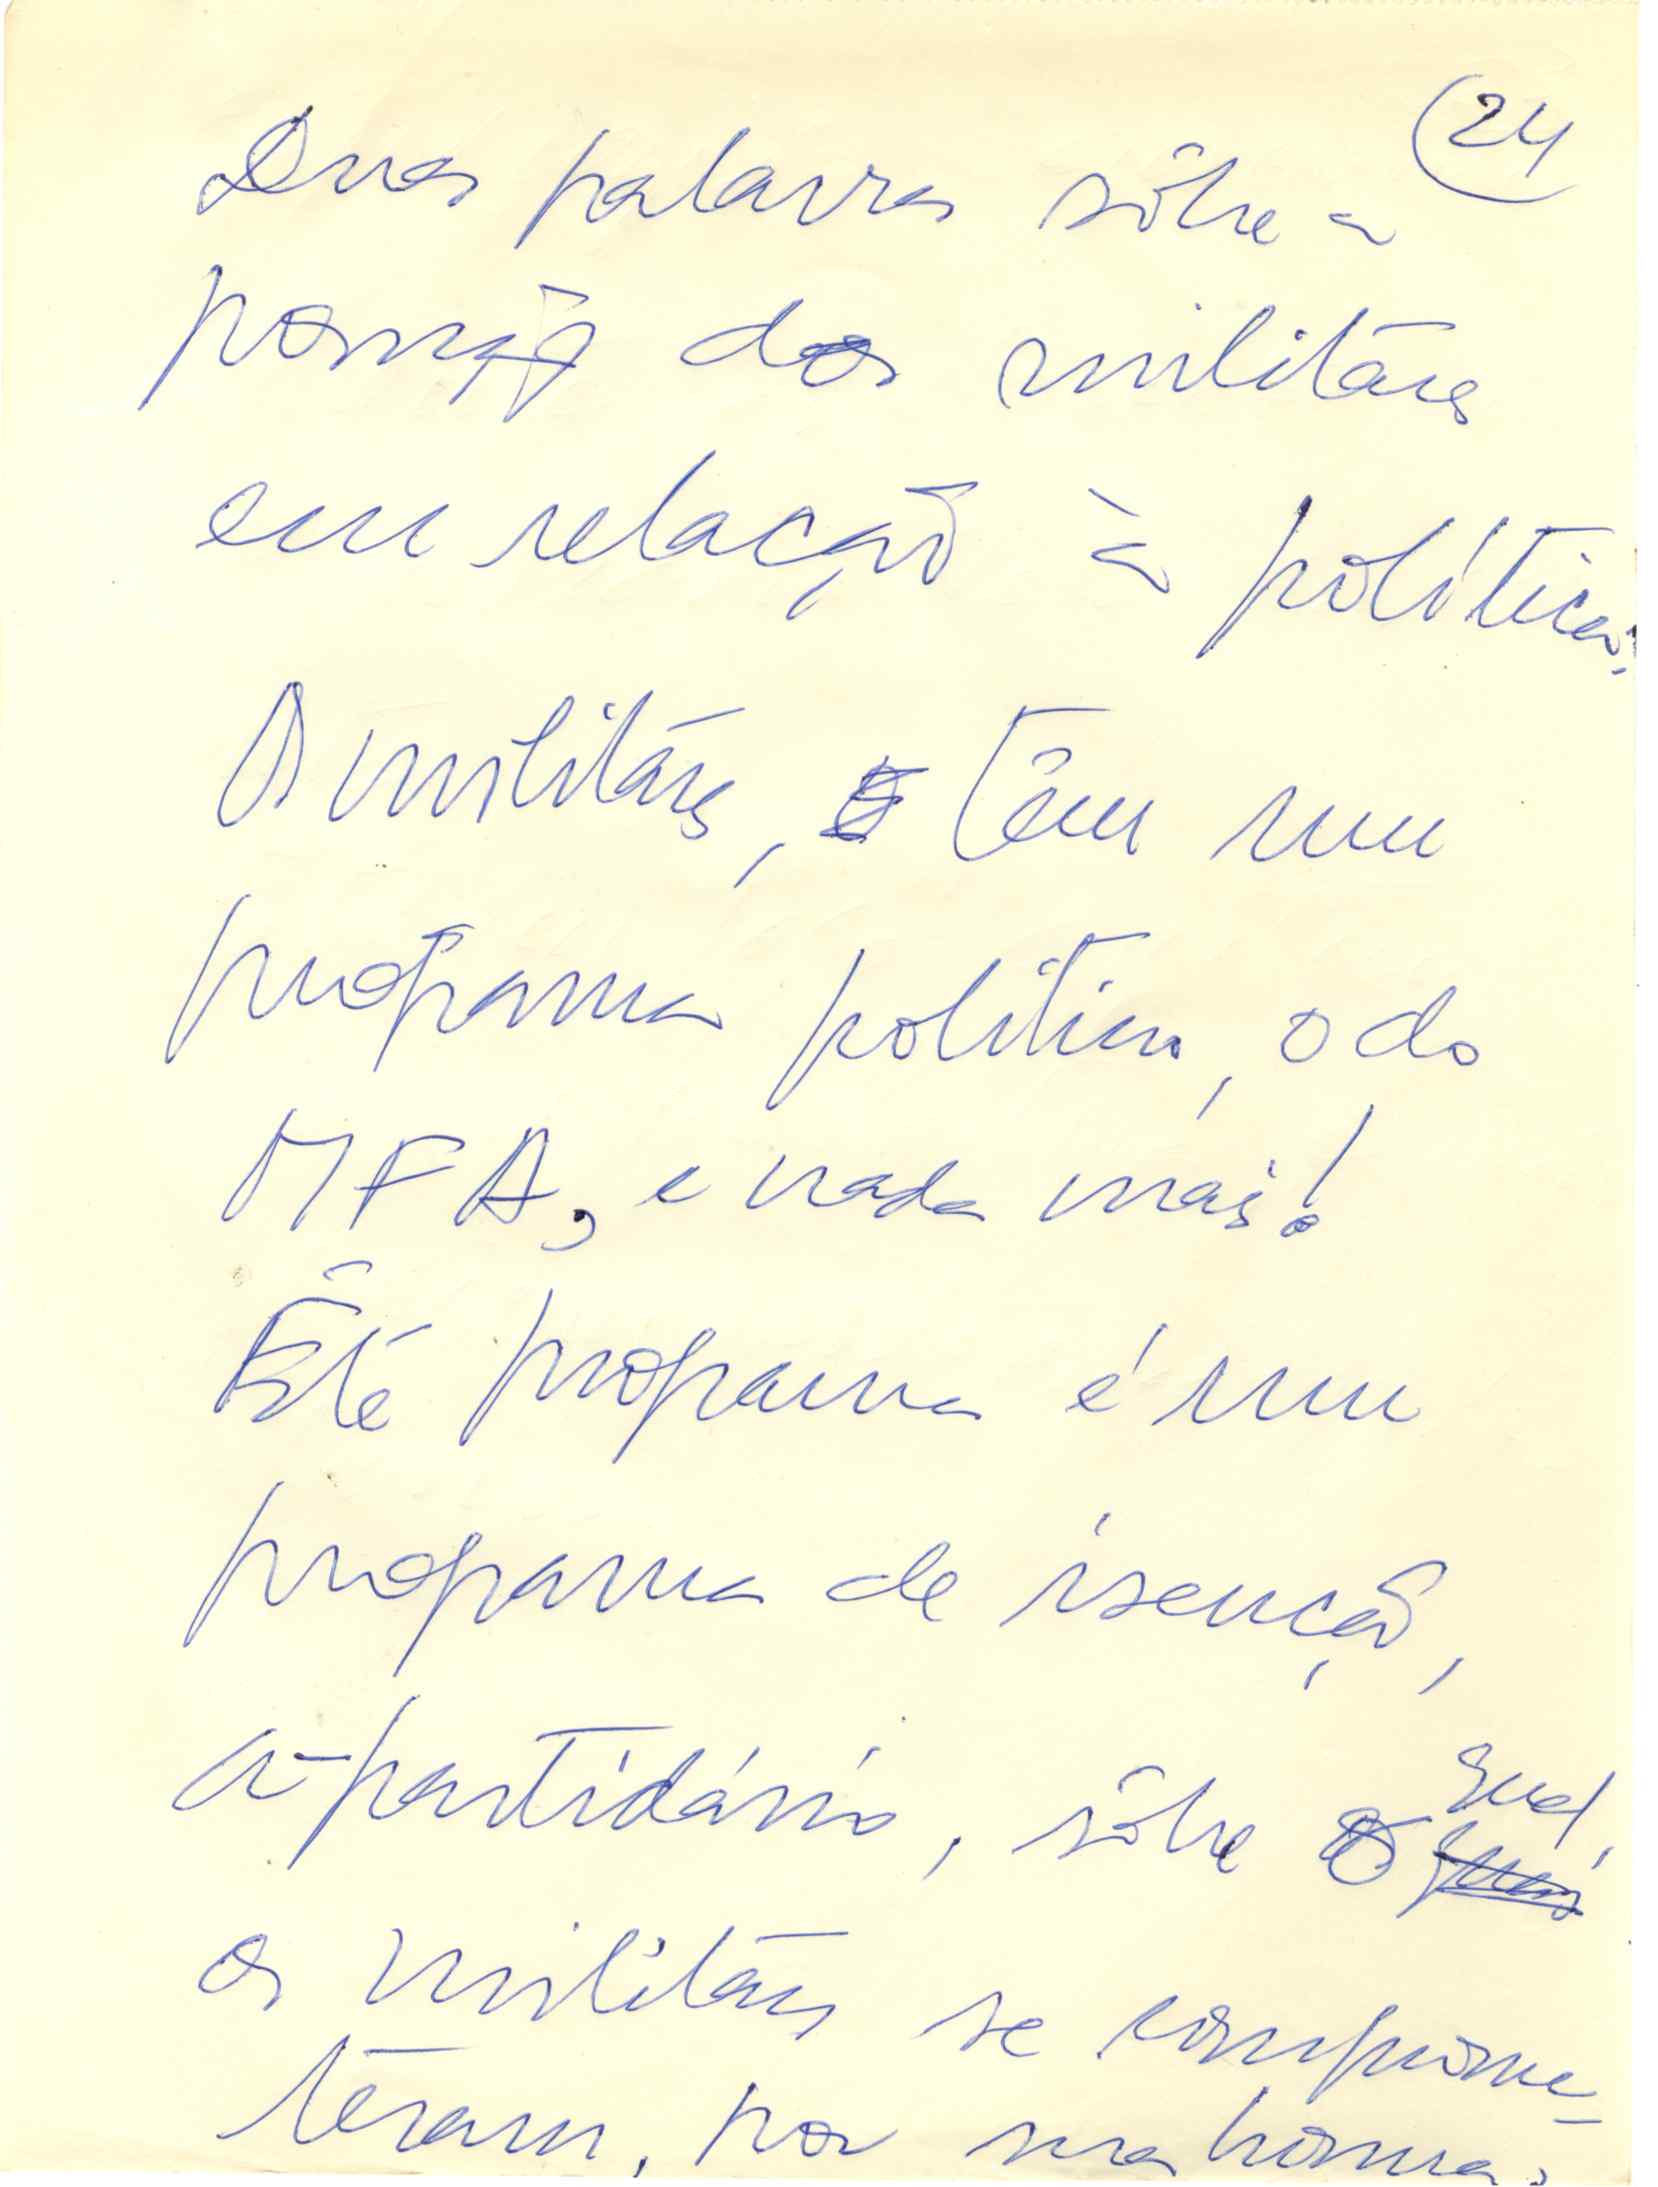 24
Duas palavras sôbre a
posição dos militares
em relação à política.
Os militares, têm um
programa político, o do
MFA, e nada mais!
Êste programa é um
programa de isenção,
a-partidário, sôbre o qual,
os militares se comprome-
teram, por sua honra.